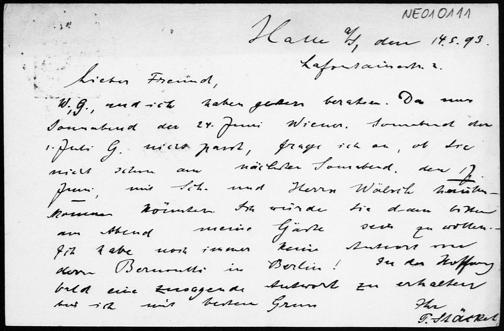 NE010111
Halle a/S, den 14.5.93.
Lafontainestr. 2.
Lieber Freund,
W. G., und ich haben gestern beraten. Da nun
Sonnabend der 24. Juni Wiener, Sonnabend der
1. Juli G. nicht passt, frage ich an, ob Sie
nicht schon am nächsten Sonnabend, den 17.
Juni, mit Sch. und Herrn Wölsch herüber-
kommen könnten. Ich würde Sie dann bitten
am Abend meine Gäste sein zu wollen.
Ich habe noch immer keine Antwort von
dem in Berlin! In der Hoffnung
bald eine zusagende Antwort zu erhalten
bin ich mit bestem Gruss
Ihr
P. Stäckel